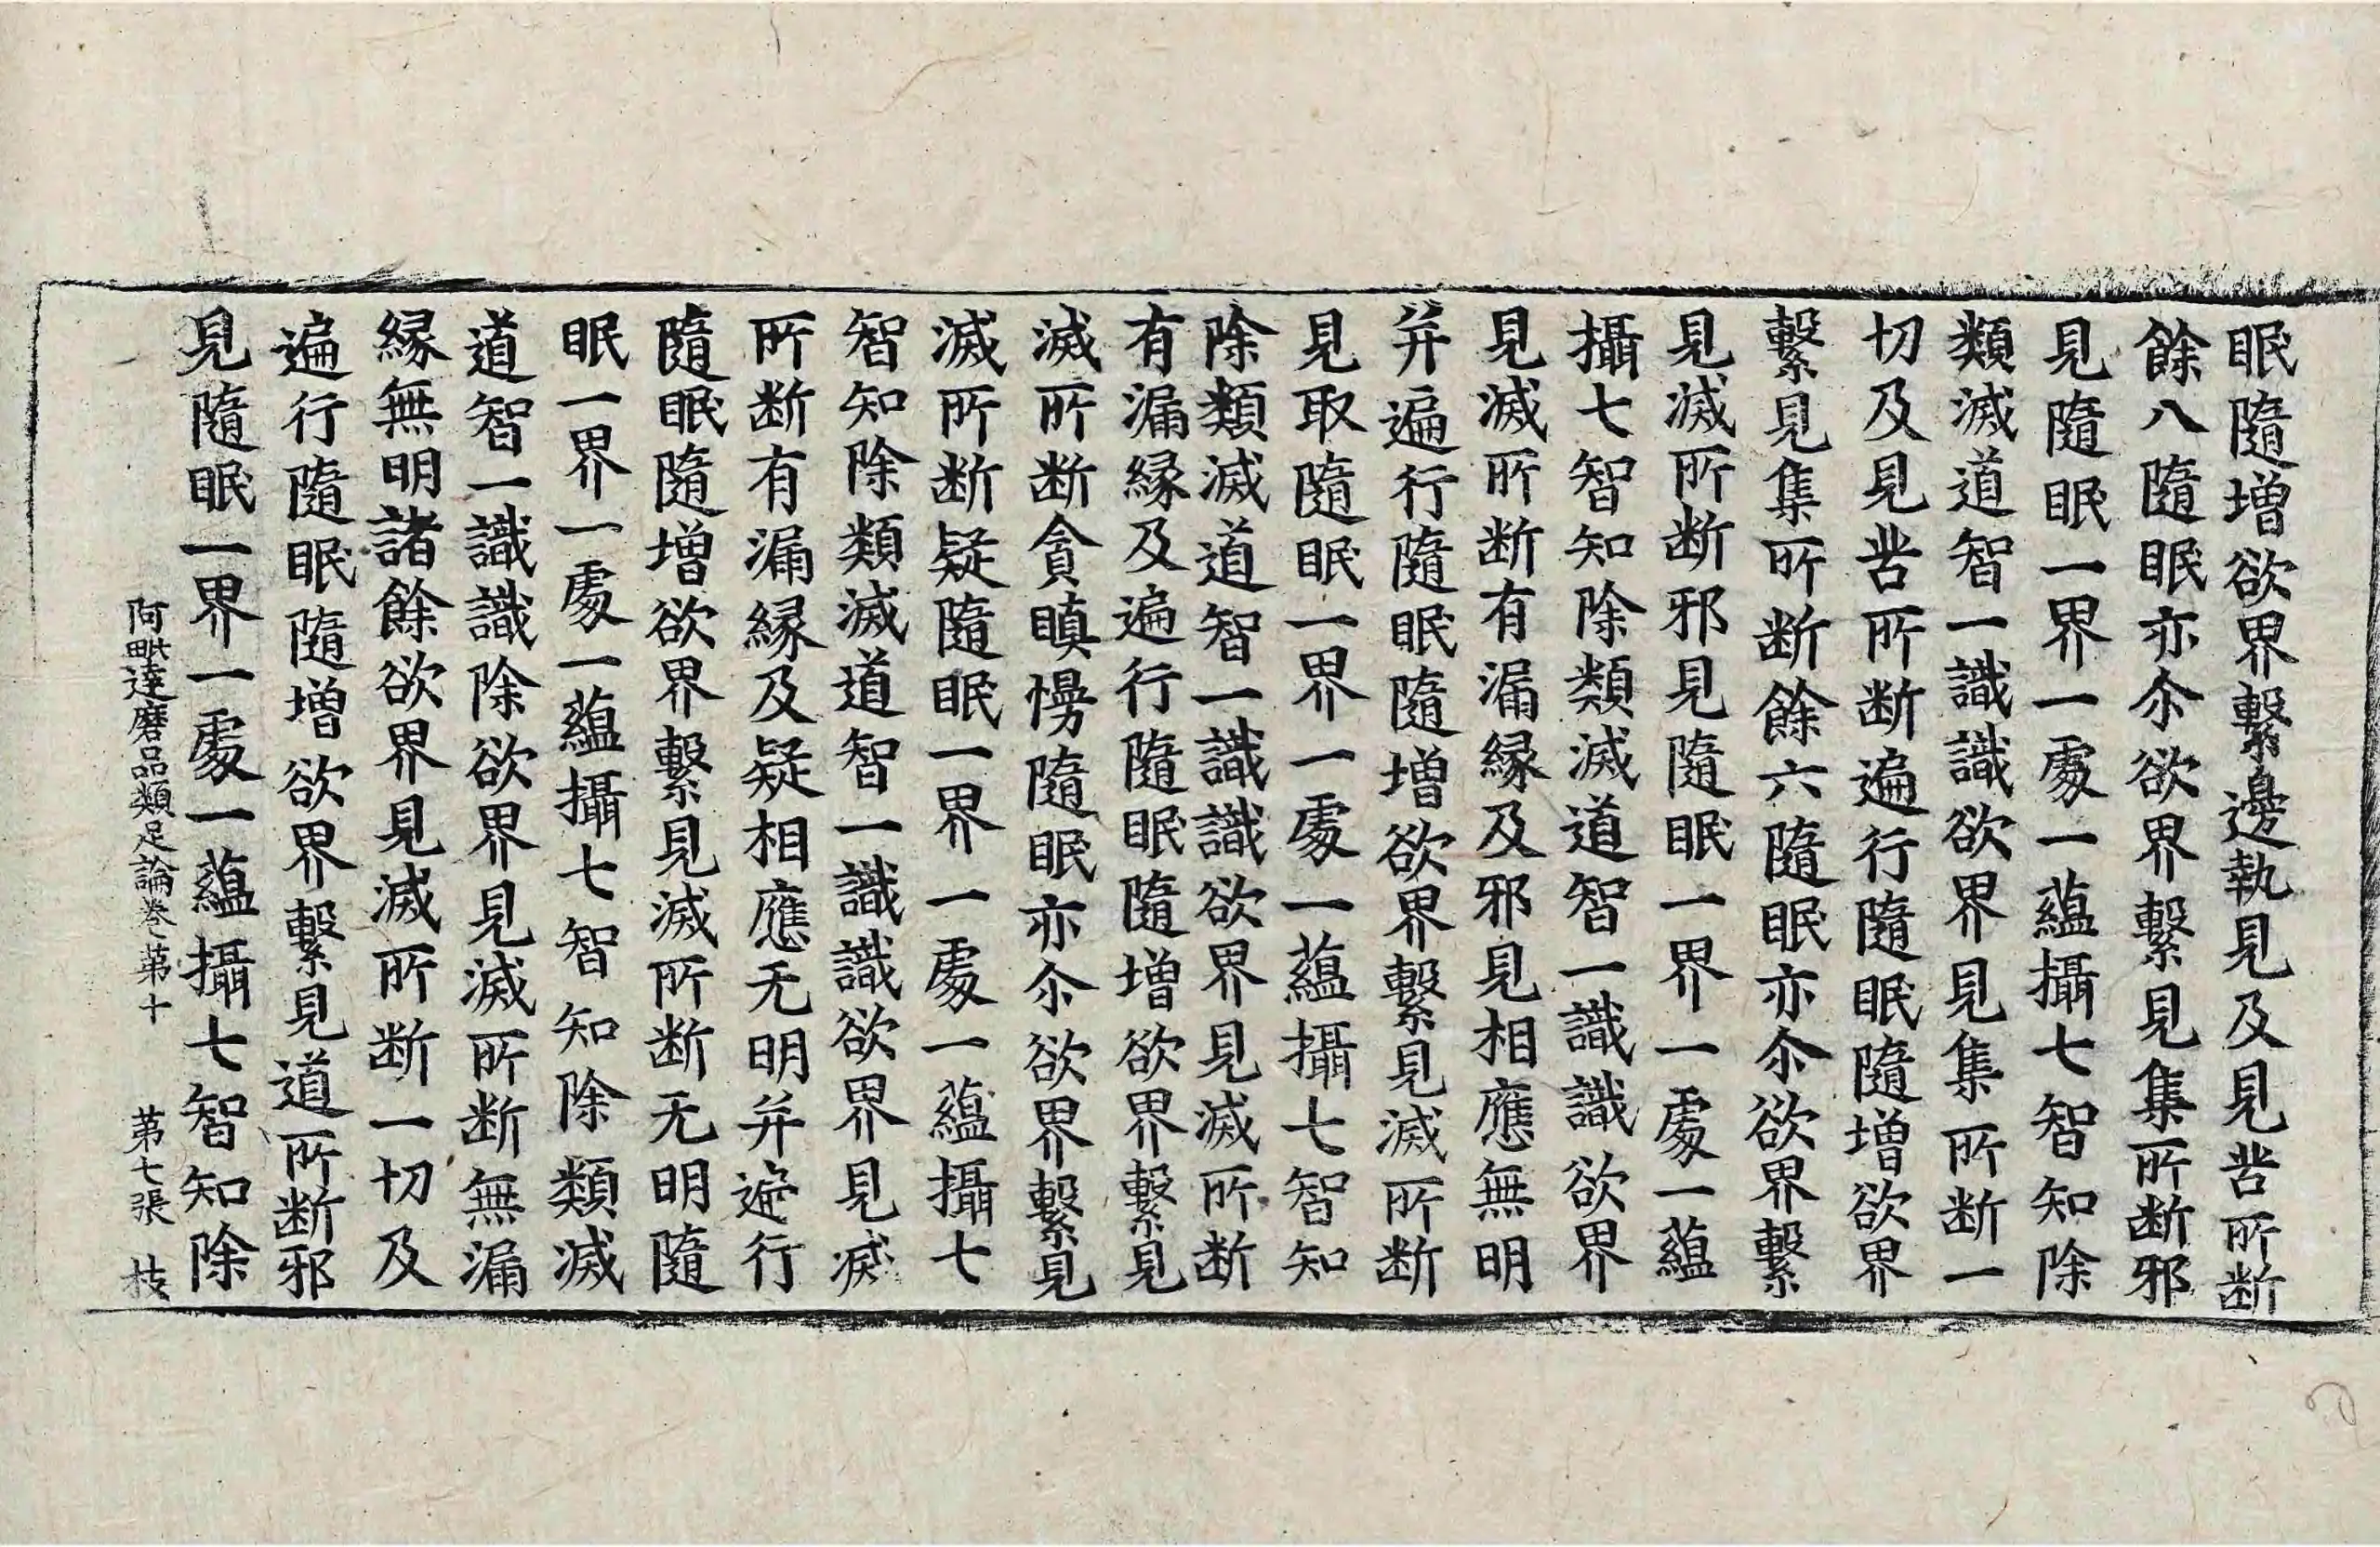 眠隨增欲界繫邊執見及見苦所断
餘八隨眠亦尒欲界繫見集所断邪
見隨眠一界一處一蘊攝七智知除
類滅道智一識識欲界見集所断一
切及見苦所断遍行隨眠隨增欲界
繫見集所断餘六隨眠亦尒欲界繫
見滅所断邪見隨眠一界一處一蘊
攝七智知除類滅道智一識識欲界
見滅所断有漏縁及邪見相應無明
并遍行隨眠隨增欲界繫見滅所断
見取隨眠一界一處一蘊攝七智知
除類滅道智一識識欲界見滅所断
有漏縁及遍行隨眠隨增欲界繫見
滅所断貪瞋慢隨眠亦尒欲界繫見
滅所断疑隨眠一界一處一蘊攝七
智知除類滅道智一識識欲界見滅
所断有漏縁及疑相應无明并遍行
隨眠隨增欲界繫見滅所断无明隨
眠一界一處一蘊攝七智知除類滅
道智一識識除欲界見滅所断無漏
縁無明諸餘欲界見滅所断一切及
遍行隨眠隨增欲界繫見道所断邪
見隨眠一界一處一蘊攝七智知除
阿毗達磨品類足論卷第十 第七張 枝